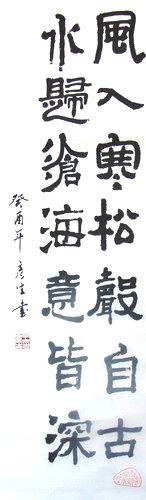 風入寒松聲自古
水歸滄海意皆深
癸酉年彦生書